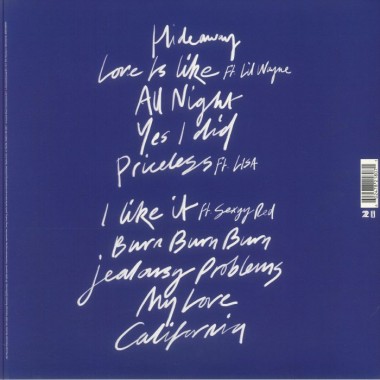 Hideaway
Love Is Like Ft Lil Wayne
All Night
Yes I did
Priceless Ft LISA
I like it ft Sexyy Red
Burn Burn Burn
jealousy Problems
My Love
California